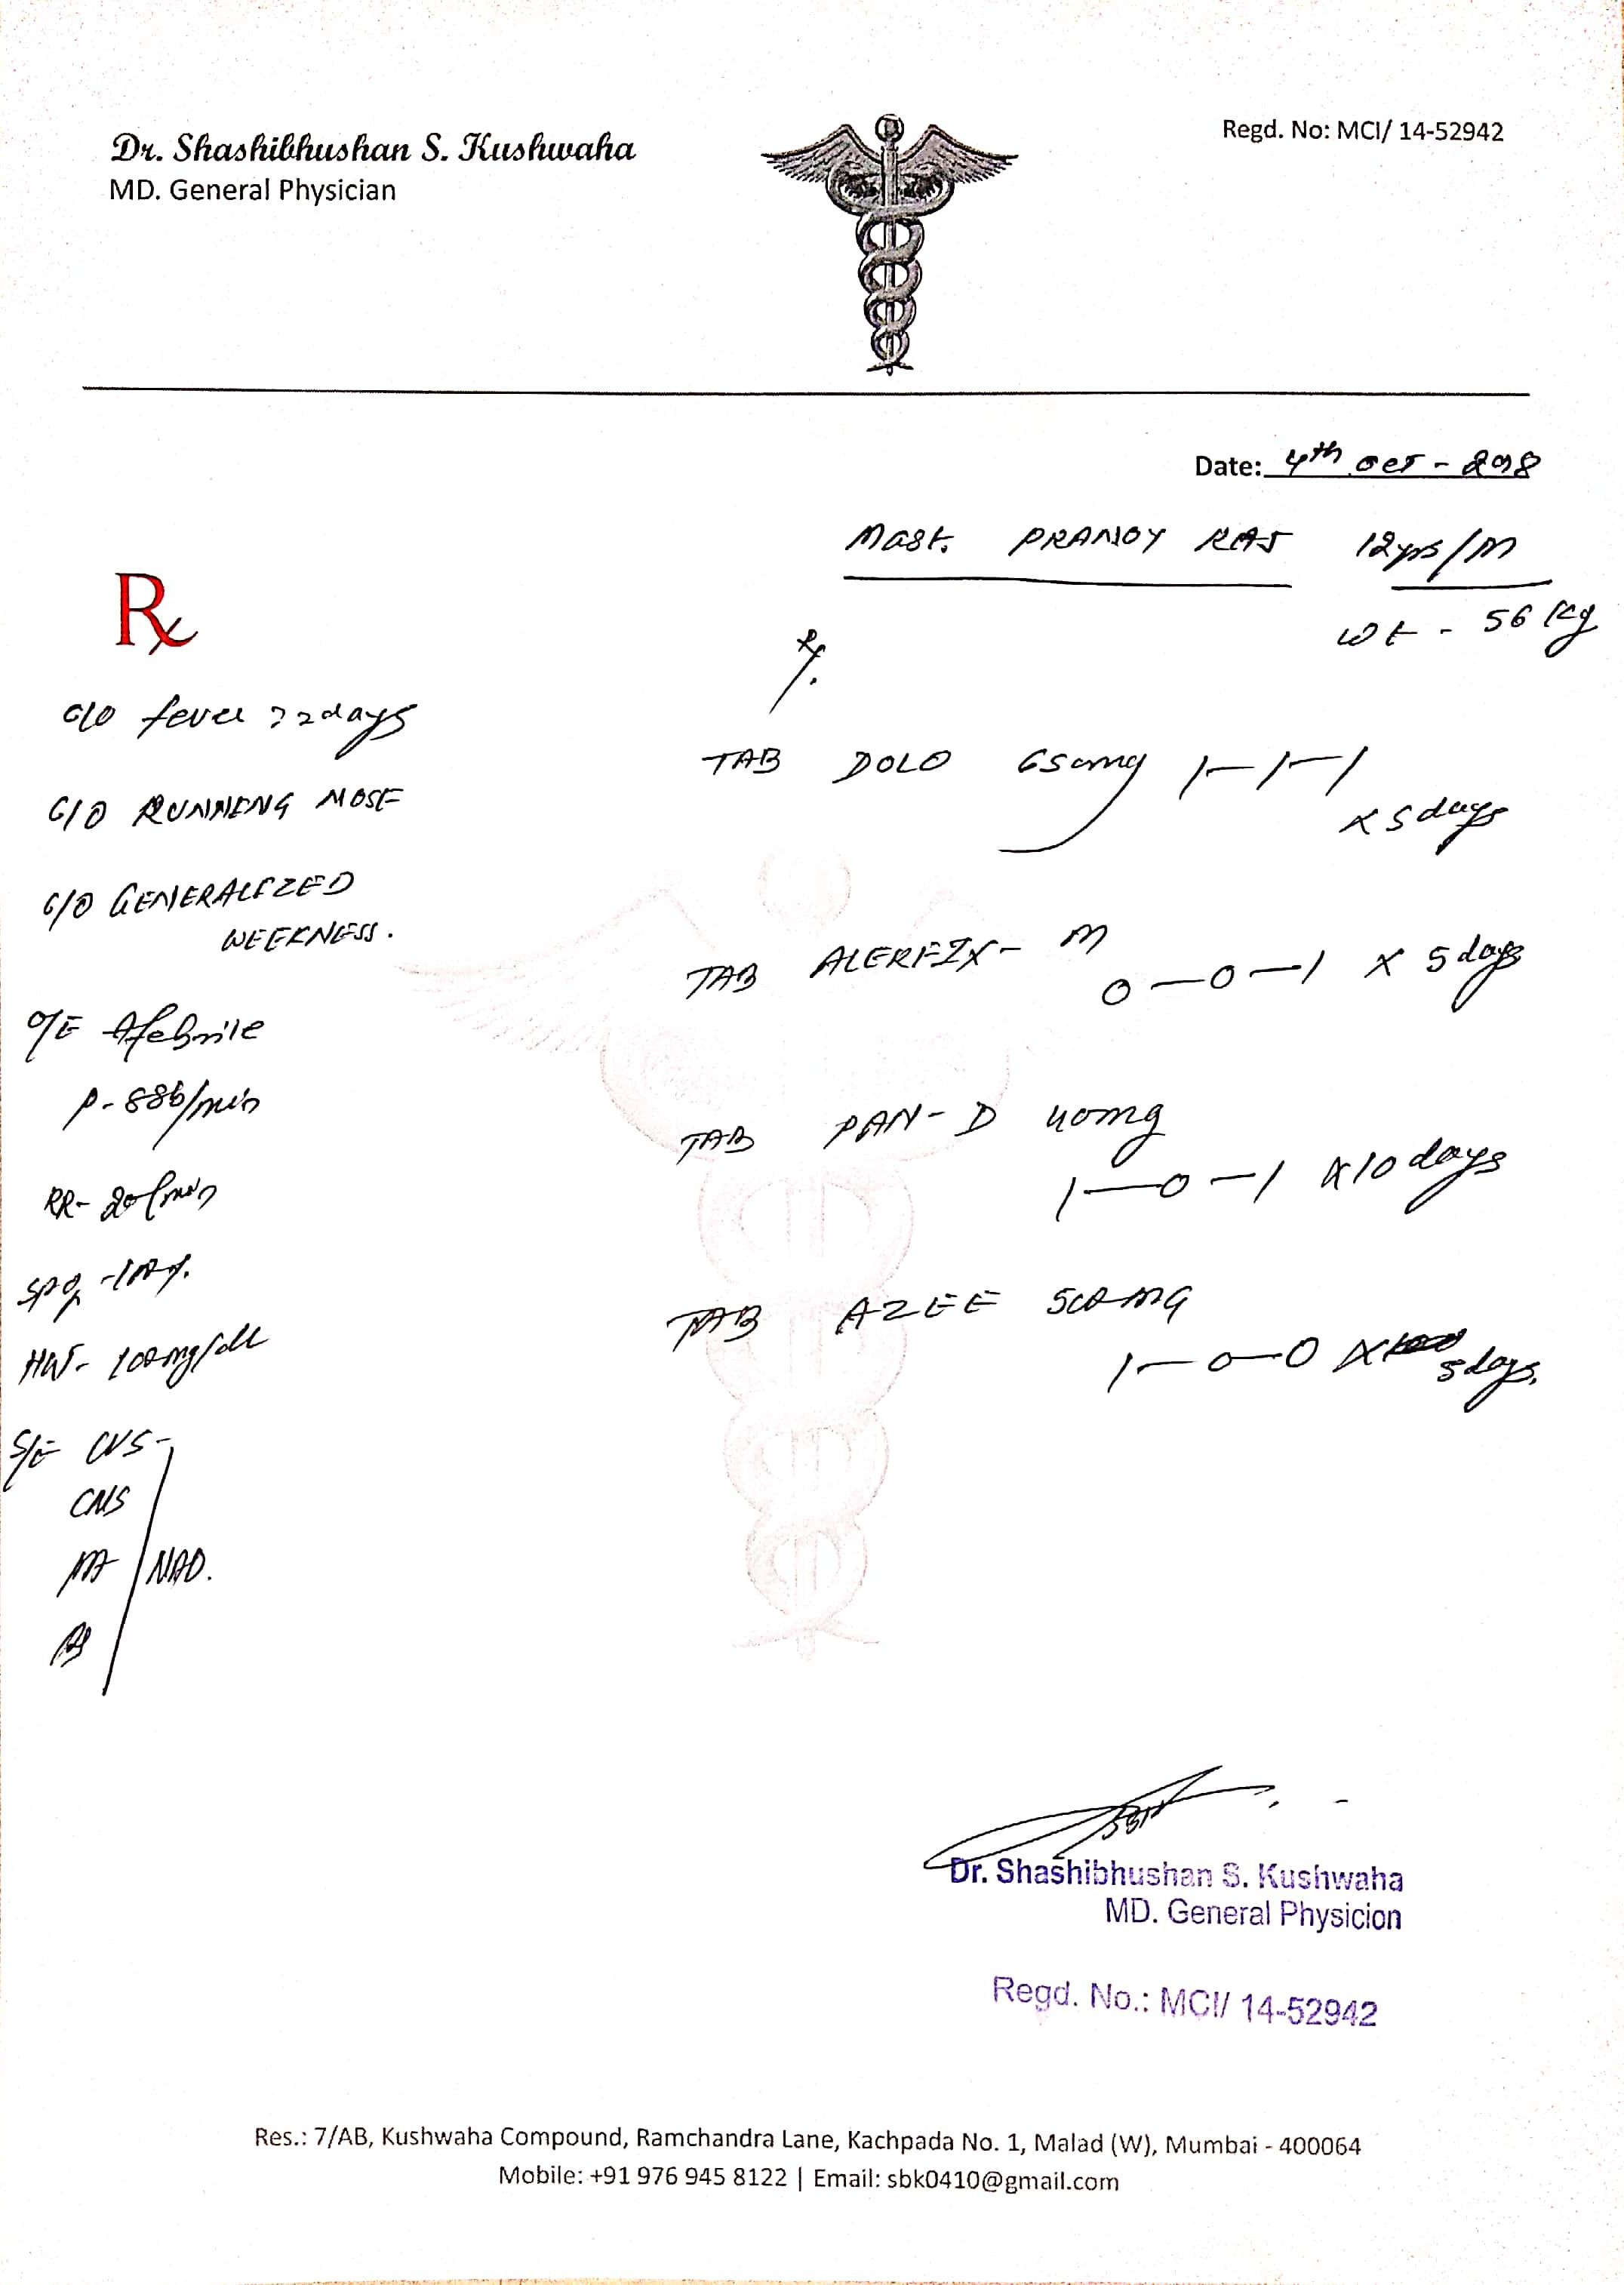 Dr. Shashibhushan S. Kushwaha
MD. General Physician
Regd. No: MCI/ 14-52942
Date: 4th Oct - 2018
Mast. PRANOY RAJ 12yrs/M
Wt - 56 Kg
Rx
Rx.
C/O fever 2 days
C/O RUNNING NOSE
C/O GENERALIZED
WEEKNESS.
O/E Afebrile
P- 88b/min
RR- 20/min
SPO2 -100%.
- 100mg/dl
S/E CVS -
CNS
NAD.
TAB DOLO 650mg 1-1-1
x 5 days
TAB ALERFIX- M
0-0-1 x 5 days
TAB PAN-D 40mg
1-0-1 x10 days
TAB AZEE 500MG
1-0-0 x 5days.
Dr. Shashibhushan S. Kushwaha
MD. General Physicion
Regd. No.: MCI/ 14-52942
Res.: 7/AB, Kushwaha Compound, Ramchandra Lane, Kachpada No. 1, Malad (W), Mumbai - 400064
Mobile: +91 976 945 8122 | Email: sbk0410@gmail.com